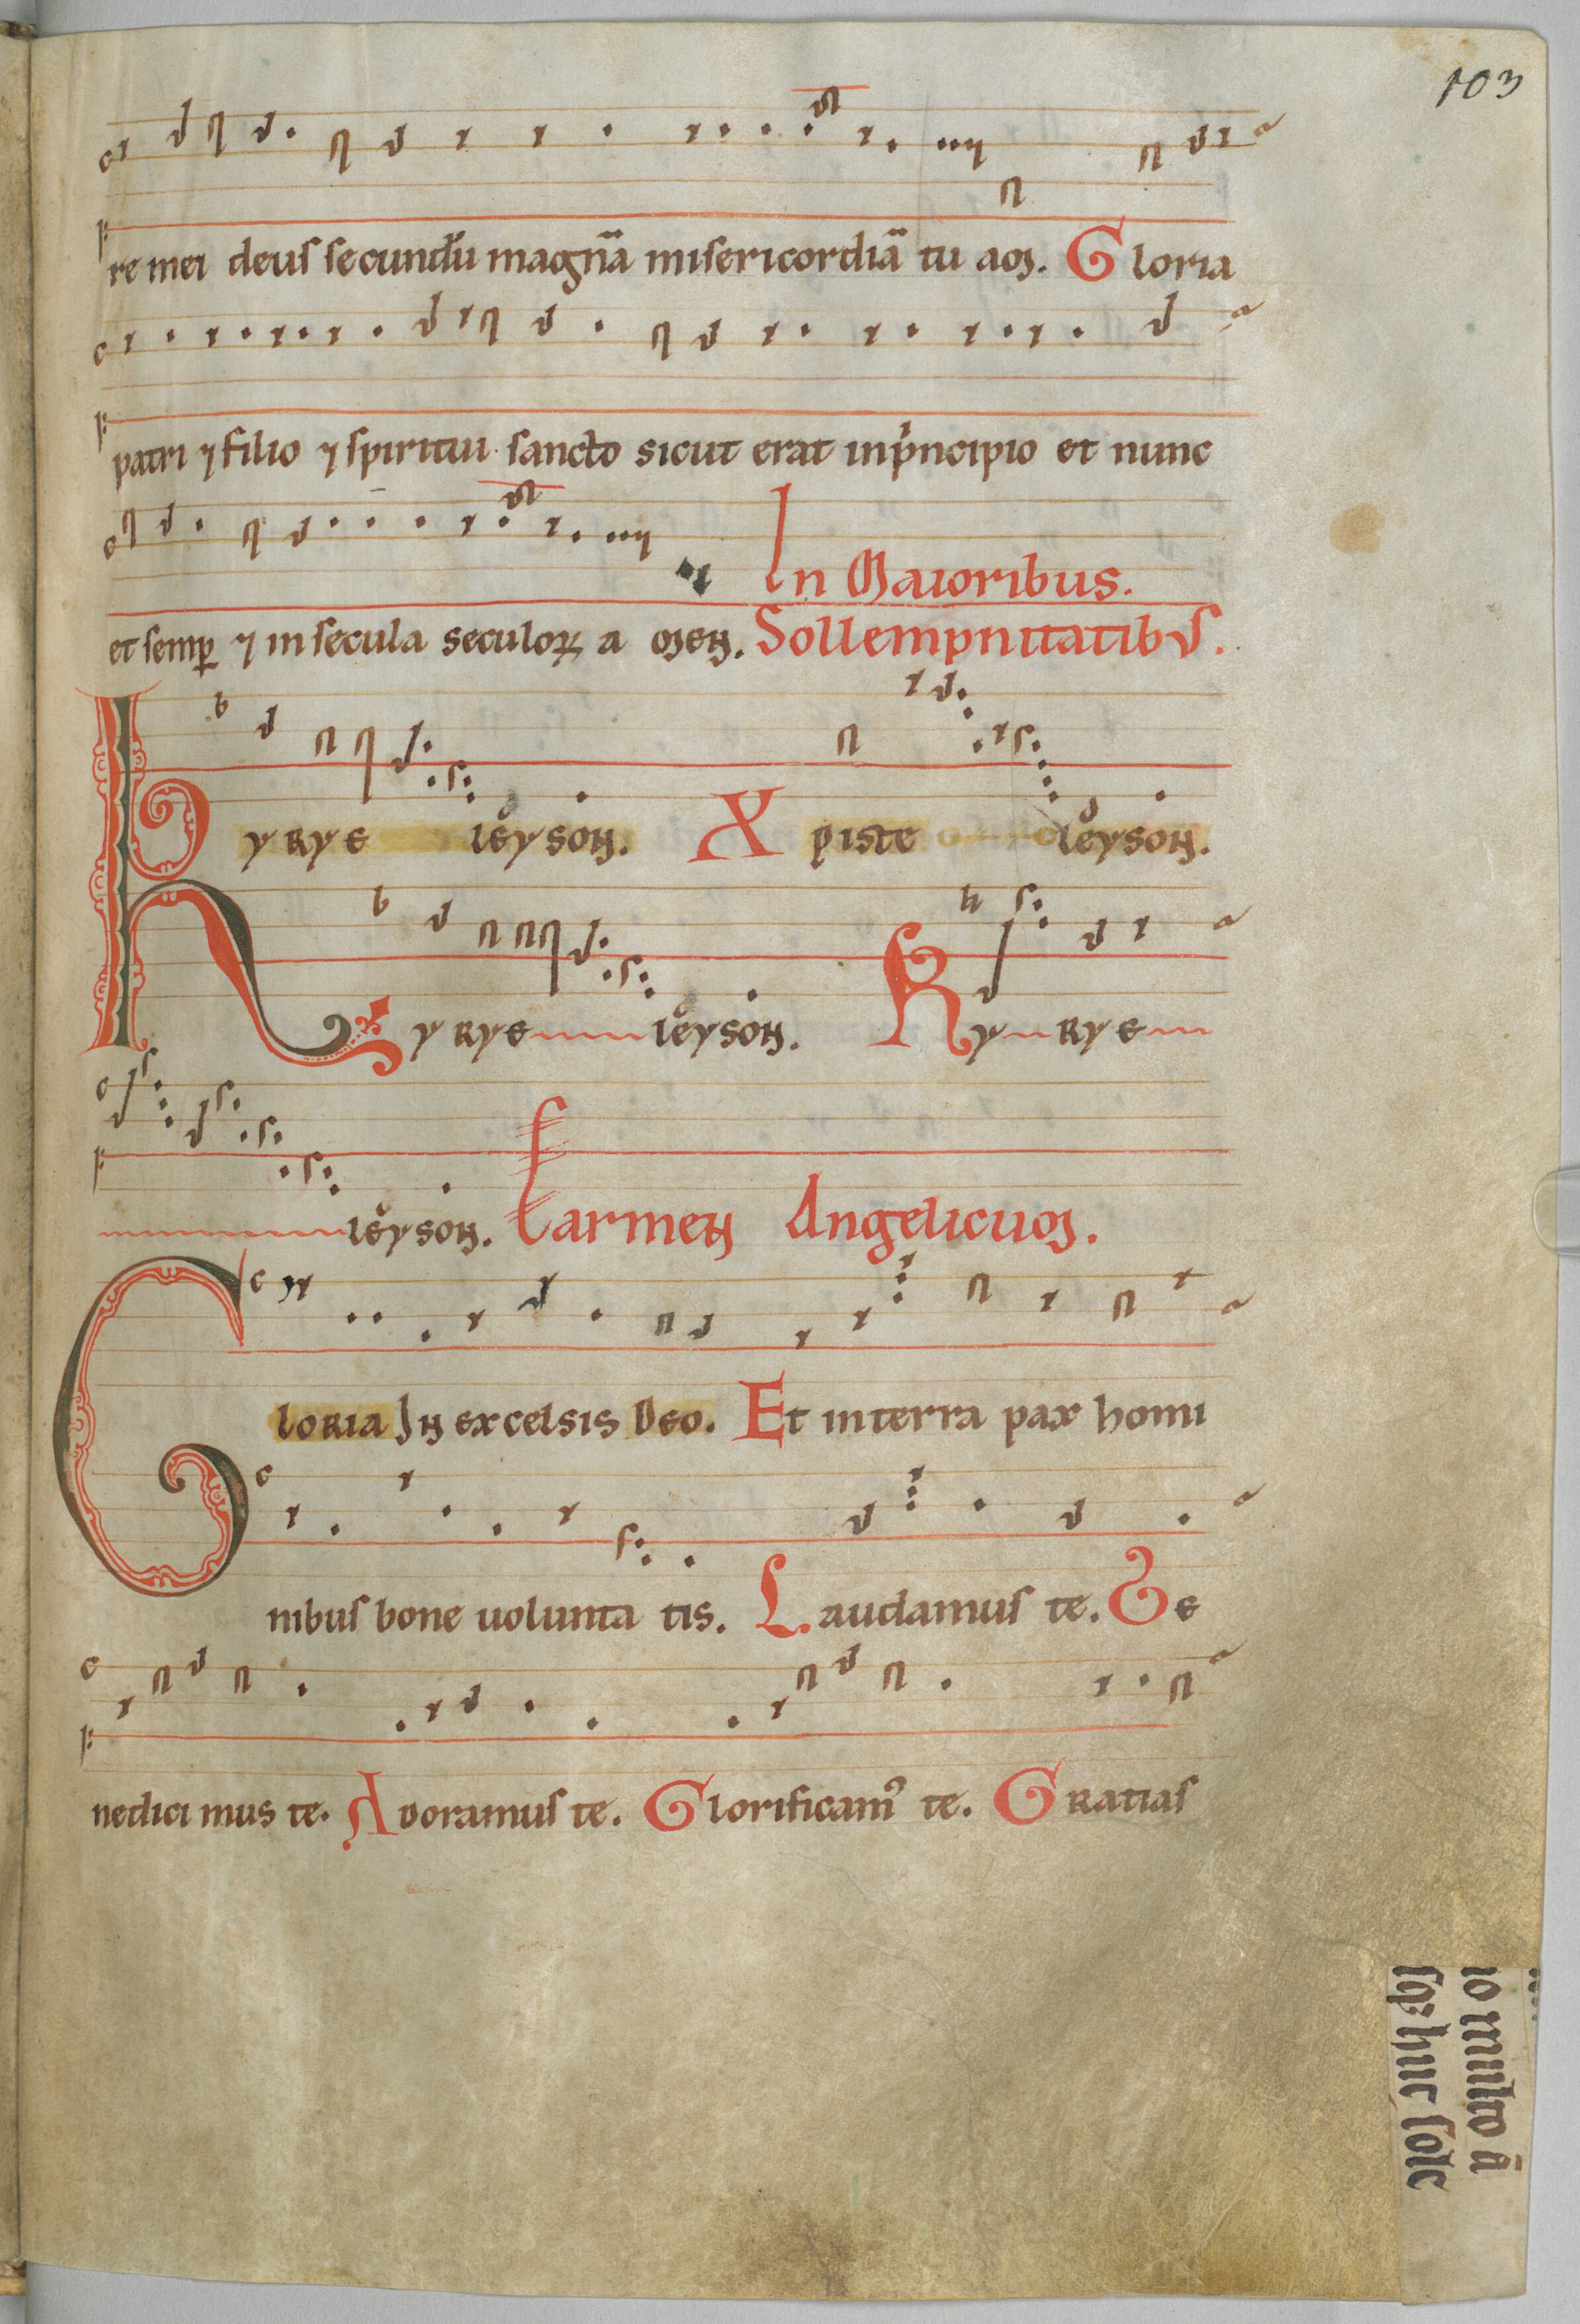 103
re mei deus secundū magnā misericordiā tu am. Gloria
patri ⁊ filio ⁊ spiritui sancto sicut erat inpncipio et nunc
In Maioribus.
et semꝑ ⁊ in secula seculoꝝ a men. Sollempnitatibus.
Kyrye leyson. Xpiste leyson.
Kyrye leyson. Kyrye
leyson. Carmen Angelicum.
Gloria In excelsis Deo. Et in terra pax homi
nibus bone uolunta tis. Laudamus te. Be
nedici mus te. Adoramus te. Glorificamꝰ te. Gratias